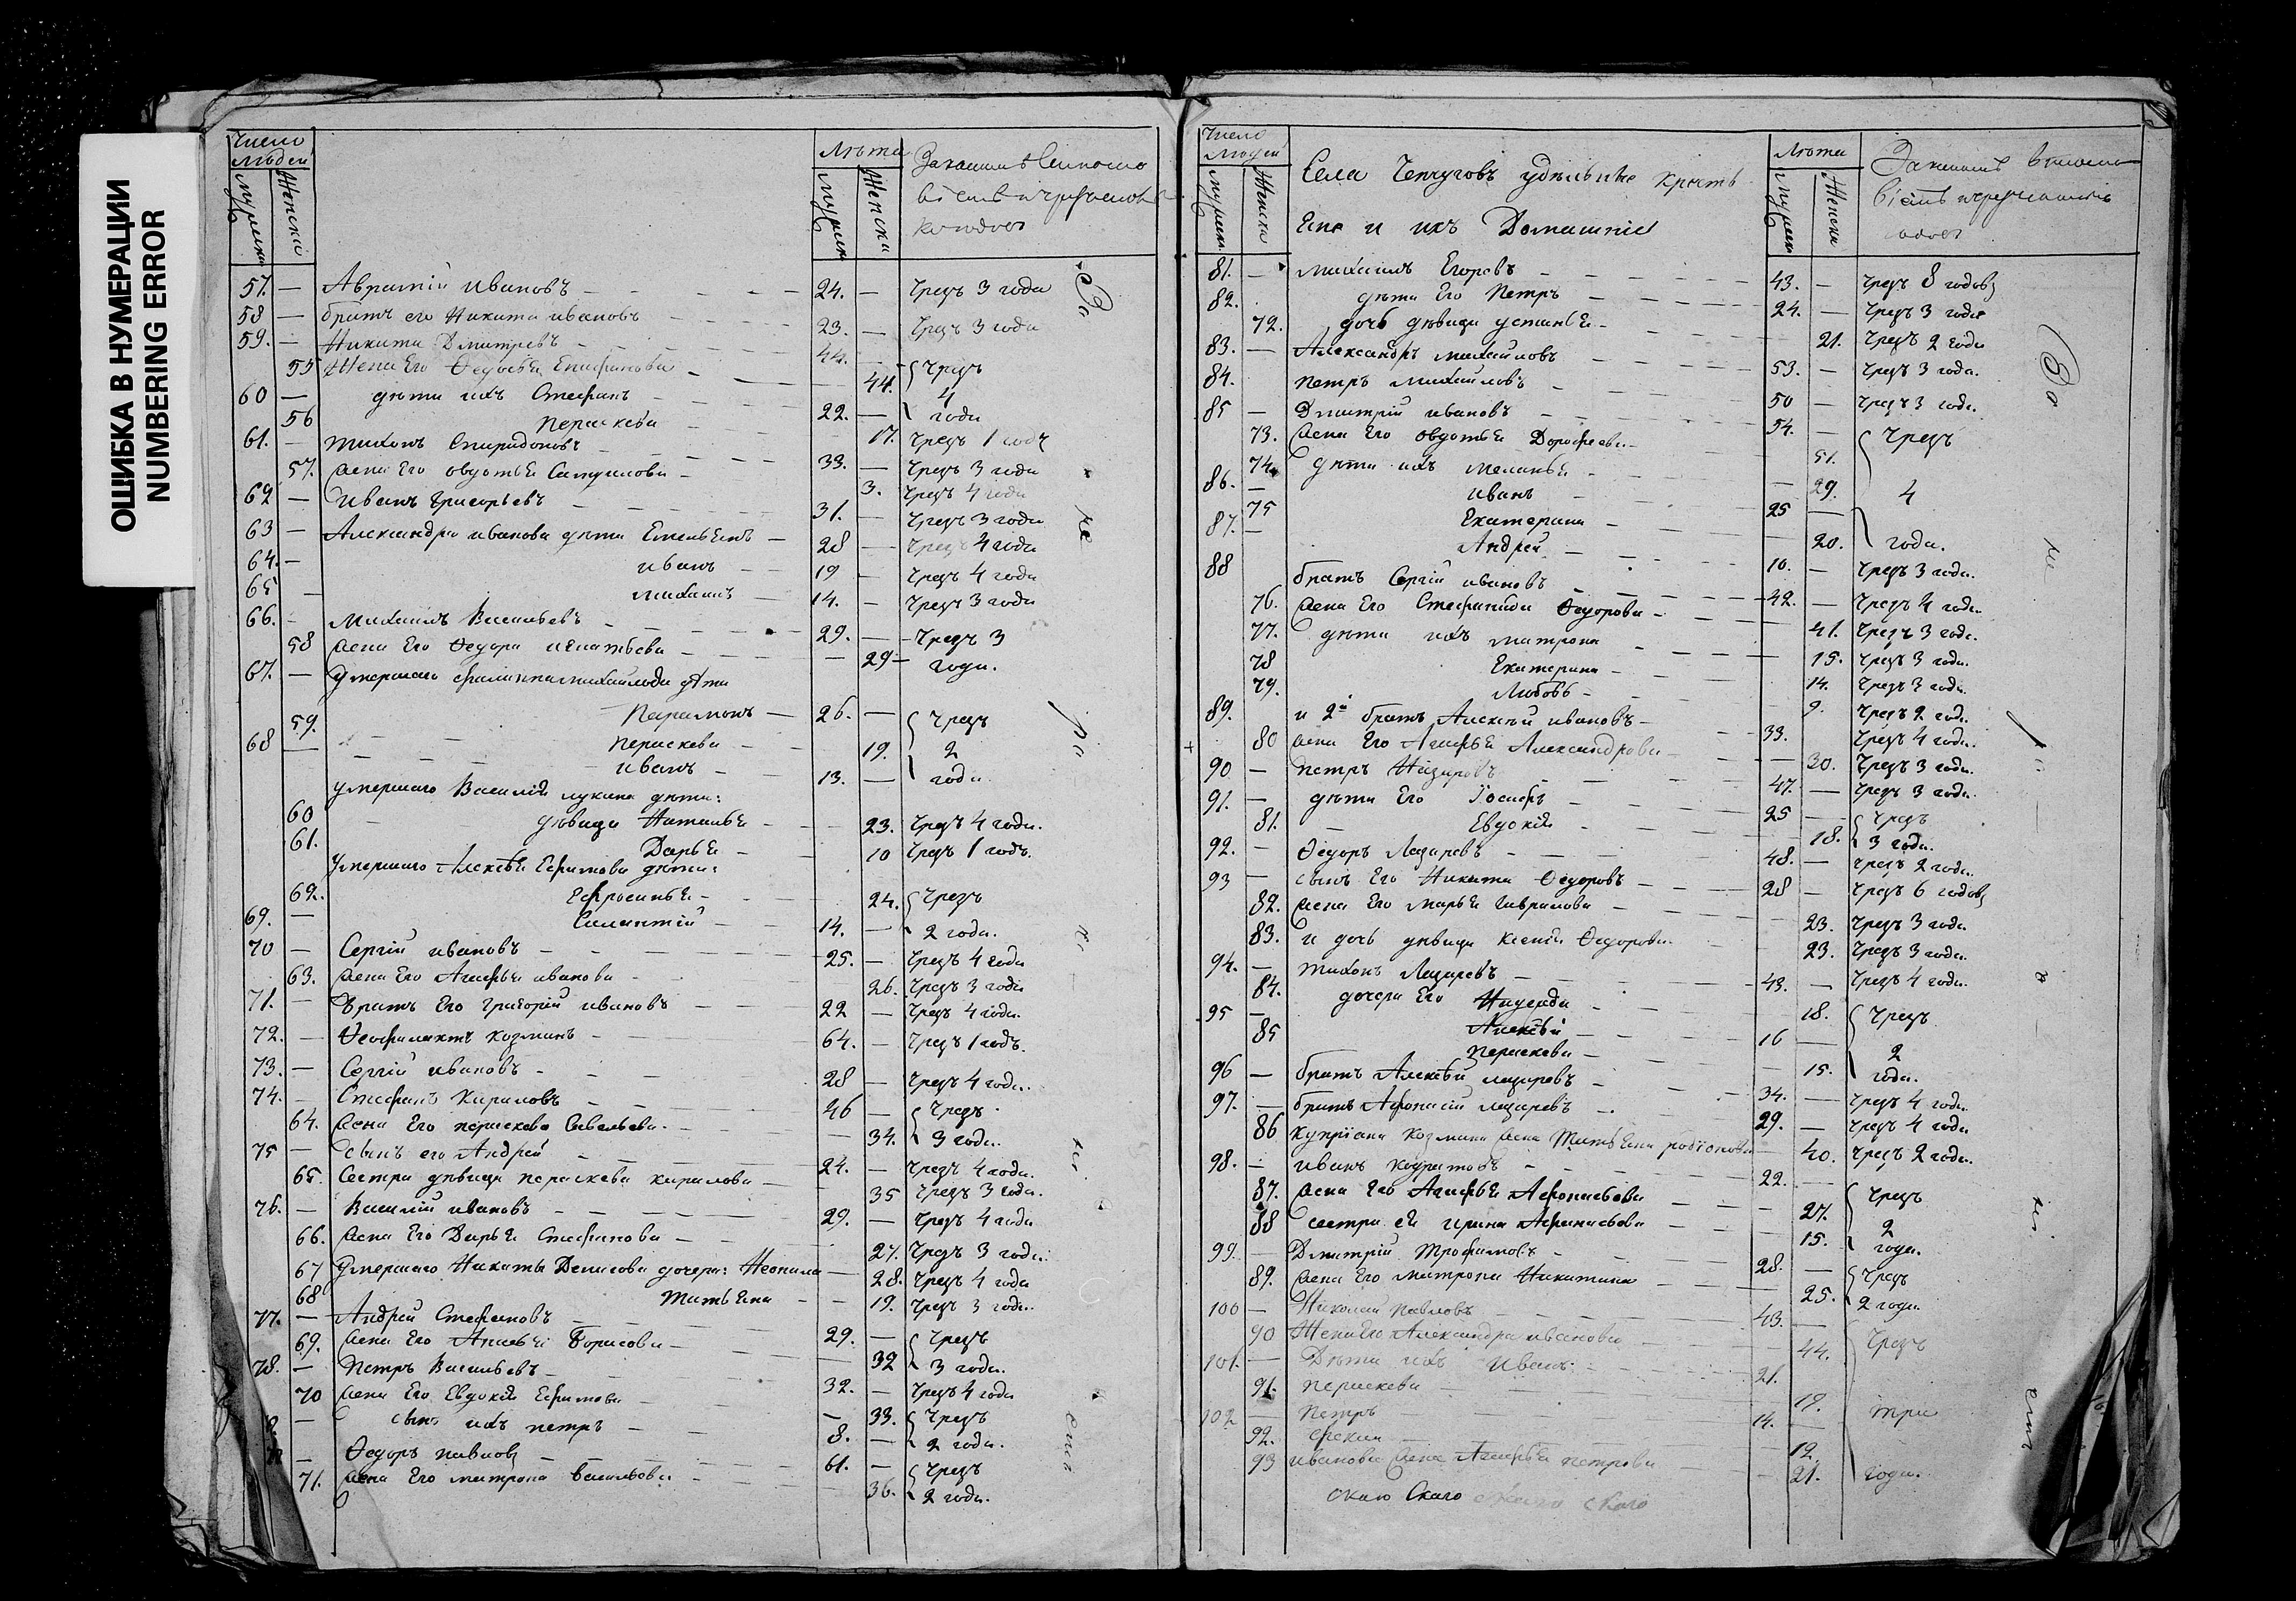 ОШИБКА В НУМЕРАЦИИ
NUMBERING ERROR
Число людей
Мужеска Женска
Лѣта
Мужеск Женска
57. — Аврамій Ивановъ — 24. — Чрезъ 3 года
58 — братъ его Никита Ивановъ — 23. — Чрезъ 3 года
59. — Никита Дмитревъ — 44. —
55 Жена Его Ѳедосья — 44. Чрезъ 4 года
60 — дѣти ихъ Стефанъ — 22. —
56 Параскева — 17. Чрезъ 1 годъ
61. — Тихонъ Спиридоновъ — 33. — Чрезъ 3 года
57. жена Его Овдотья Самуилова — 3. Чрезъ 4 года
62 — Иванъ Григорьевъ — 31. — Чрезъ 3 года
63 — Александра Иванова дѣти Емельянъ — 28 — Чрезъ 4 года
64. — Иванъ — 19 — Чрезъ 4 года
65 — Михаилъ — 14. — Чрезъ 3 года
66. — Михаилъ Васильевъ — 29. — Чрезъ 3
58 жена Его Ѳедора Игнатьева — 29 — года.
67. — Умершаго Филиппа Михайлова дѣти
Парамонъ — 26. — Чрезъ
59. Параскева — 19. 2
68 — Иванъ — 13. — года
умершаго Василія Лукина дѣти:
60 дѣвица Наталья — 23. Чрезъ 4 года.
61. Дарья — 10 Чрезъ 1 годъ.
умершаго Алексѣя Ефимова дѣти:
62. Ефросинья — 24. Чрезъ
69. — Силантій — 14. — 2 года.
70 — Сергій Ивановъ — 25. — Чрезъ 4 года
63. жена Его Агафья Иванова — 26. Чрезъ 3 года
71. — Братъ Его Григорій Ивановъ — 22 — Чрезъ 4 года.
72. — Ѳеофилактъ Козминъ — 64. — Чрезъ 1 годъ.
73. — Сергій Ивановъ — 28 — Чрезъ 4 года.
74. — Стефанъ Кириловъ — 46 — Чрезъ
64. жена Его Параскева Савельева — 34. 3 года.
75 — Сынъ его Андрей — 24. — Чрезъ 4 года.
65. Сестра дѣвица Параскева Кирилова — 35 Чрезъ 3 года.
76. — Василій Ивановъ — 29. — Чрезъ 4 года
66. жена Его Дарья Стефанова — 27. Чрезъ 3 года.
67 Умершаго Никиты Денисова дочери: Неонила — 28. Чрезъ 4 года
68 Татьяна — 19. Чрезъ 3 года.
77. — Андрей Стефановъ — 29. — Чрезъ
69. жена Его Анисья Борисова — 32 3 года.
78. — Петръ Васильевъ — 32. — Чрезъ 4 года
70 жена Его Евдокія Ефимова — 33. Чрезъ
— сынъ ихъ Петръ — 8. — 2 года.
— Ѳедоръ Павловъ — 61. — Чрезъ
71. жена Его Матрона Васильева — 36. 2 года.
Число людей
Мужеска Женска
Села Чепчуговъ удѣльные крестьяне и ихъ Домашніе
Лѣта
Мужеск Женска
81. — Михаилъ Егоровъ — 43. — Чрезъ 8 годовъ
82. дѣти Его Петръ — 24. — Чрезъ 3 года
72. дочь дѣвица Устинья — 21. Чрезъ 2 года
83. — Александръ Михайловъ — 53. — Чрезъ 3 года.
84. Петръ Михайловъ — 50 — Чрезъ 3 года.
85 — Дмитрій Ивановъ — 54. —
73. жена Его Овдотья Дорофеева — 51. Чрезъ
74. дѣти ихъ Меланья — 29. 4
86. — Иванъ — 25 —
75 Екатерина — 20. года.
87. — Андрей — 10. — Чрезъ 3 года.
88 братъ Сергій Ивановъ — 42. — Чрезъ 4 года.
76. жена Его Стефанида Ѳедорова — 41. Чрезъ 3 года.
77. дѣти ихъ Матрона — 15. Чрезъ 3 года.
78 Екатерина — 14. Чрезъ 3 года.
79. Любовь — 9. Чрезъ 2 года.
89. и 2й братъ Алексѣй Ивановъ — 33. Чрезъ 4 года.
80 жена Его Агафья Александрова — 30. Чрезъ 3 года.
90 — Петръ Назаровъ — 47. — Чрезъ 3 года.
91. — дѣти Его Іосифъ — 25 — Чрезъ
81. Евдокія — 18. 3 года.
92. — Ѳедоръ Лазаревъ — 48. — Чрезъ 2 года.
93 — сынъ Его Никита Ѳедоровъ — 28 — Чрезъ 6 годовъ
82. жена Его Марья Гаврилова — 23. Чрезъ 3 года.
83. и дочь дѣвица Ксенія Ѳедорова — 23. Чрезъ 3 года.
94. — Тихонъ Лазаревъ — 43. — Чрезъ 4 года.
84. дочери Его Надежда — 18. Чрезъ
95 — Алексѣй — 16 — 2
85 Параскева — 15. года.
96 — братъ Алексѣй Лазаревъ — 34. — Чрезъ 4 года.
97. — братъ Афонасій Лазаревъ — 29. — Чрезъ 4 года
86 Купріана Козмина жена Татьяна Родіонова — 40. Чрезъ 2 года.
98. — Иванъ Кодратовъ — 22. —
87. жена Его Агафья Афонасьева — 27. Чрезъ
88 сестра ей Ирина Афанасьева — 15. 2 года.
99. — Дмитрій Трофимовъ — 28. — Чрезъ
89. жена Его Матрона Никитина — 25. 2 года
100 — Николай Павловъ — 43. —
90 Жена Его Александра Иванова — 44. Чрезъ
101. — Дѣти ихъ Иванъ — 21.
91. Параскева — 19. три
102 — Петръ — 14. —
92. — 12.
93 Иванова жена Агафья Петрова — 21. года.
скаго скаго скаго скаго